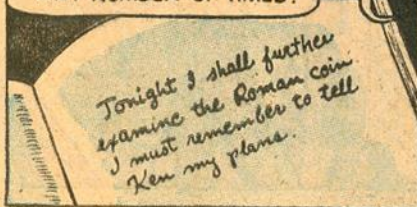 NUMBER OF TIMES!
Tonight I shall further
examine the Roman coin
I must remember to tell
Ken my plans.